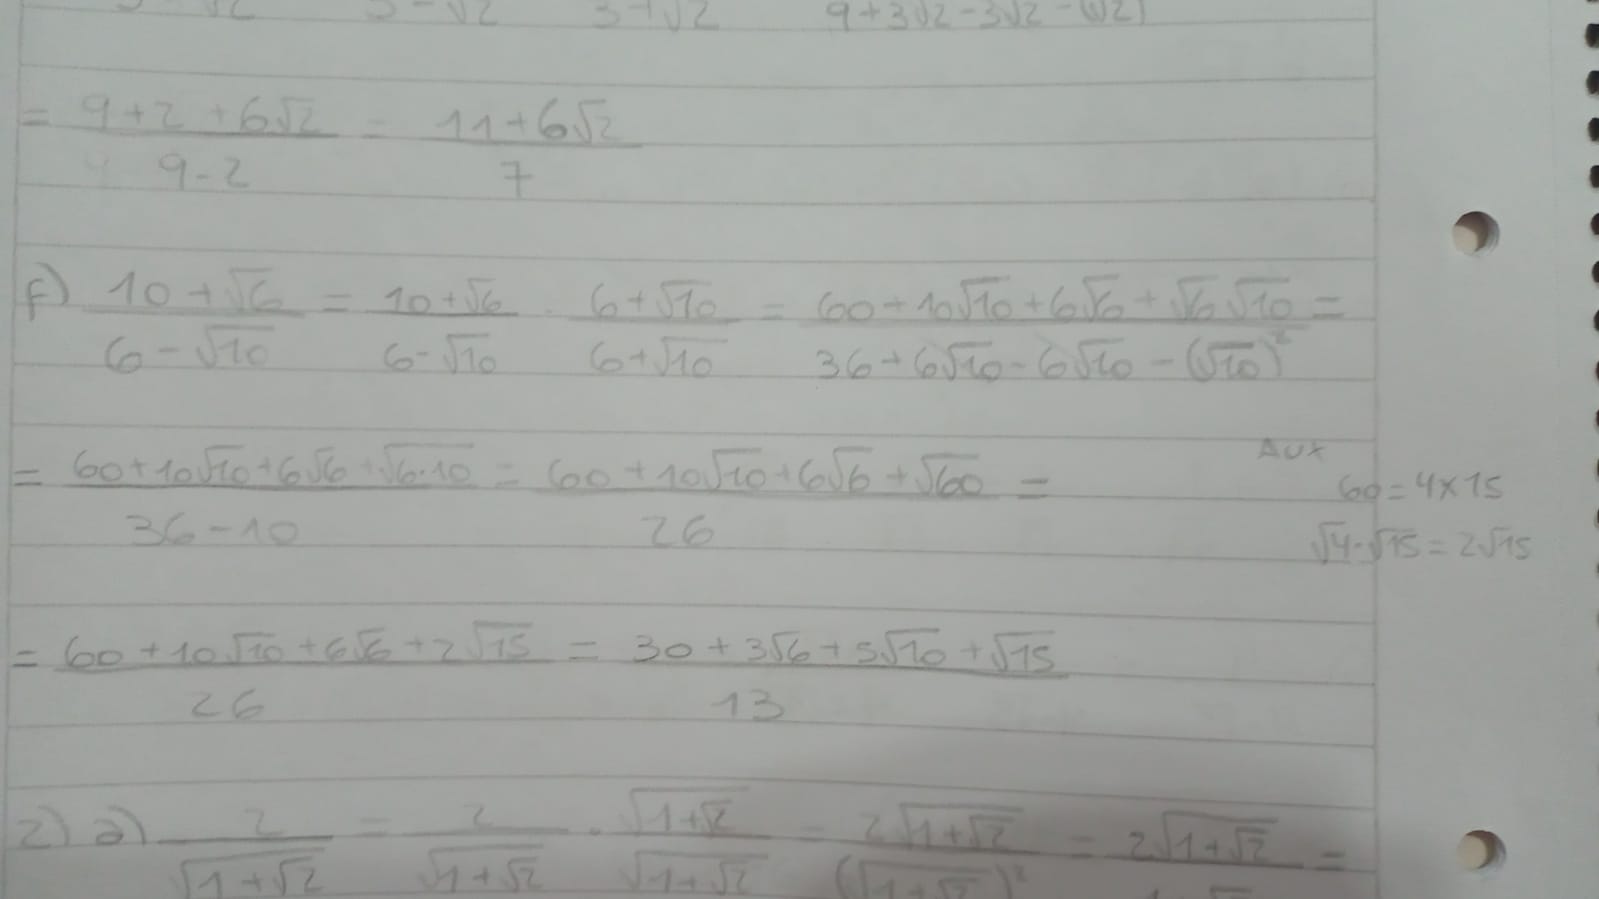 9+3√2-3√2-(√2)
= (9+2+6√2)/(9-2) = (11+6√2)/7
f) (10+√6)/(6-√10) = (10+√6)/(6-√10) · (6+√10)/(6+√10) = (60+10√10+6√6+√6√10)/(36+6√10-6√10-(√10)²) =
= (60+10√10+6√6+√6·10)/(36-10) = (60+10√10+6√6+√60)/26 =
Aux
60=4×15
√4·√15=2√15
= (60+10√10+6√6+2√15)/26 = (30+3√6+5√10+√15)/13
2) a) 2/√(1+√2) = 2/√(1+√2) · √(1+√2)/√(1+√2) = 2√(1+√2)/(√(1+√2))² = 2√(1+√2) =